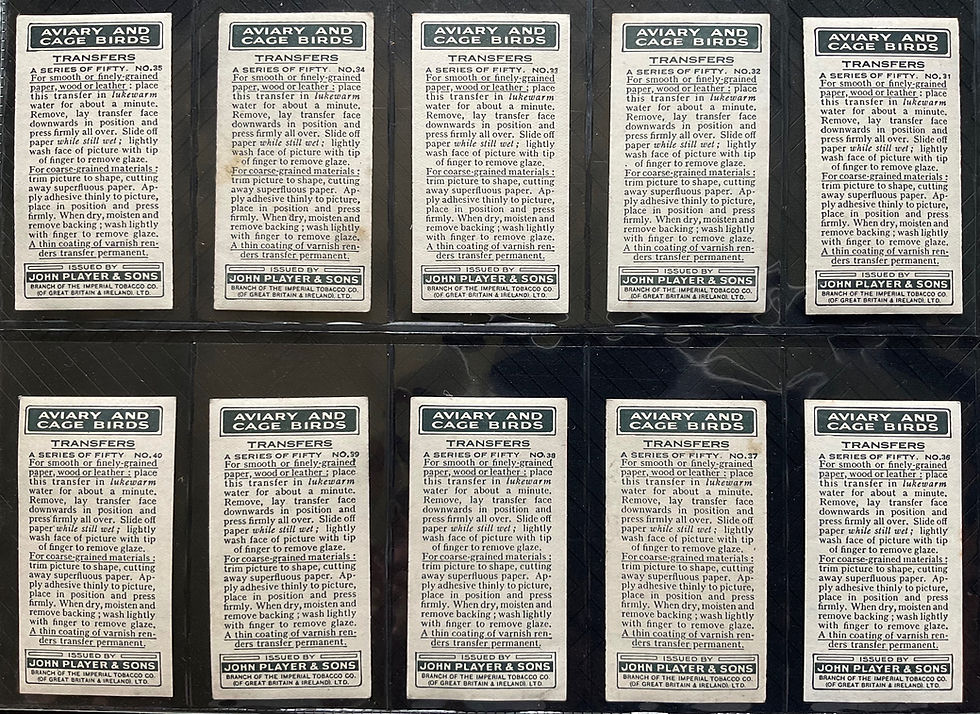 AVIARY AND
CAGE BIRDS
TRANSFERS
A SERIES OF FIFTY. NO.35
For smooth or finely-grained
paper, wood or leather : place
this transfer in lukewarm
water for about a minute.
Remove, lay transfer face
downwards in position and
press firmly all over. Slide off
paper while still wet ; lightly
wash face of picture with tip
of finger to remove glaze.
For coarse-grained materials :
trim picture to shape, cutting
away superfluous paper. Ap-
ply adhesive thinly to picture,
place in position and press
firmly. When dry, moisten and
remove backing ; wash lightly
with finger to remove glaze.
A thin coating of varnish ren-
ders transfer permanent.
ISSUED BY
JOHN PLAYER & SONS
BRANCH OF THE IMPERIAL TOBACCO CO.
(OF GREAT BRITAIN & IRELAND), LTD.
AVIARY AND
CAGE BIRDS
TRANSFERS
A SERIES OF FIFTY. NO.34
For smooth or finely-grained
paper, wood or leather : place
this transfer in lukewarm
water for about a minute.
Remove, lay transfer face
downwards in position and
press firmly all over. Slide off
paper while still wet ; lightly
wash face of picture with tip
of finger to remove glaze.
For coarse-grained materials :
trim picture to shape, cutting
away superfluous paper. Ap-
ply adhesive thinly to picture,
place in position and press
firmly. When dry, moisten and
remove backing ; wash lightly
with finger to remove glaze.
A thin coating of varnish ren-
ders transfer permanent.
ISSUED BY
JOHN PLAYER & SONS
BRANCH OF THE IMPERIAL TOBACCO CO.
(OF GREAT BRITAIN & IRELAND), LTD.
AVIARY AND
CAGE BIRDS
TRANSFERS
A SERIES OF FIFTY. NO.33
For smooth or finely-grained
paper, wood or leather : place
this transfer in lukewarm
water for about a minute.
Remove, lay transfer face
downwards in position and
press firmly all over. Slide off
paper while still wet ; lightly
wash face of picture with tip
of finger to remove glaze.
For coarse-grained materials :
trim picture to shape, cutting
away superfluous paper. Ap-
ply adhesive thinly to picture,
place in position and press
firmly. When dry, moisten and
remove backing ; wash lightly
with finger to remove glaze.
A thin coating of varnish ren-
ders transfer permanent.
ISSUED BY
JOHN PLAYER & SONS
BRANCH OF THE IMPERIAL TOBACCO CO.
(OF GREAT BRITAIN & IRELAND), LTD.
AVIARY AND
CAGE BIRDS
TRANSFERS
A SERIES OF FIFTY. NO.32
For smooth or finely-grained
paper, wood or leather : place
this transfer in lukewarm
water for about a minute.
Remove, lay transfer face
downwards in position and
press firmly all over. Slide off
paper while still wet ; lightly
wash face of picture with tip
of finger to remove glaze.
For coarse-grained materials :
trim picture to shape, cutting
away superfluous paper. Ap-
ply adhesive thinly to picture,
place in position and press
firmly. When dry, moisten and
remove backing ; wash lightly
with finger to remove glaze.
A thin coating of varnish ren-
ders transfer permanent.
ISSUED BY
JOHN PLAYER & SONS
BRANCH OF THE IMPERIAL TOBACCO CO.
(OF GREAT BRITAIN & IRELAND), LTD.
AVIARY AND
CAGE BIRDS
TRANSFERS
A SERIES OF FIFTY. NO.31
For smooth or finely-grained
paper, wood or leather : place
this transfer in lukewarm
water for about a minute.
Remove, lay transfer face
downwards in position and
press firmly all over. Slide off
paper while still wet ; lightly
wash face of picture with tip
of finger to remove glaze.
For coarse-grained materials :
trim picture to shape, cutting
away superfluous paper. Ap-
ply adhesive thinly to picture,
place in position and press
firmly. When dry, moisten and
remove backing ; wash lightly
with finger to remove glaze.
A thin coating of varnish ren-
ders transfer permanent.
ISSUED BY
JOHN PLAYER & SONS
BRANCH OF THE IMPERIAL TOBACCO CO.
(OF GREAT BRITAIN & IRELAND), LTD.
AVIARY AND
CAGE BIRDS
TRANSFERS
A SERIES OF FIFTY NO.40
For smooth or finely-grained
paper, wood or leather : place
this transfer in lukewarm
water for about a minute.
Remove, lay transfer face
downwards in position and
press firmly all over. Slide off
paper while still wet ; lightly
wash face of picture with tip
of finger to remove glaze.
For coarse-grained materials :
trim picture to shape, cutting
away superfluous paper. Ap-
ply adhesive thinly to picture,
place in position and press
firmly. When dry, moisten and
remove backing ; wash lightly
with finger to remove glaze.
A thin coating of varnish ren-
ders transfer permanent.
ISSUED BY
JOHN PLAYER & SONS
BRANCH OF THE IMPERIAL TOBACCO CO.
(OF GREAT BRITAIN & IRELAND), LTD.
AVIARY AND
CAGE BIRDS
TRANSFERS
A SERIES OF FIFTY NO.39
For smooth or finely-grained
paper, wood or leather : place
this transfer in lukewarm
water for about a minute.
Remove, lay transfer face
downwards in position and
press firmly all over. Slide off
paper while still wet ; lightly
wash face of picture with tip
of finger to remove glaze.
For coarse-grained materials :
trim picture to shape, cutting
away superfluous paper. Ap-
ply adhesive thinly to picture,
place in position and press
firmly. When dry, moisten and
remove backing ; wash lightly
with finger to remove glaze.
A thin coating of varnish ren-
ders transfer permanent.
ISSUED BY
JOHN PLAYER & SONS
BRANCH OF THE IMPERIAL TOBACCO CO.
(OF GREAT BRITAIN & IRELAND), LTD.
AVIARY AND
CAGE BIRDS
TRANSFERS
A SERIES OF FIFTY NO.38
For smooth or finely-grained
paper, wood or leather : place
this transfer in lukewarm
water for about a minute.
Remove, lay transfer face
downwards in position and
press firmly all over. Slide off
paper while still wet ; lightly
wash face of picture with tip
of finger to remove glaze.
For coarse-grained materials :
trim picture to shape, cutting
away superfluous paper. Ap-
ply adhesive thinly to picture,
place in position and press
firmly. When dry, moisten and
remove backing ; wash lightly
with finger to remove glaze.
A thin coating of varnish ren-
ders transfer permanent.
ISSUED BY
JOHN PLAYER & SONS
BRANCH OF THE IMPERIAL TOBACCO CO.
(OF GREAT BRITAIN & IRELAND), LTD.
AVIARY AND
CAGE BIRDS
TRANSFERS
A SERIES OF FIFTY. NO.37
For smooth or finely-grained
paper, wood or leather : place
this transfer in lukewarm
water for about a minute.
Remove, lay transfer face
downwards in position and
press firmly all over. Slide off
paper while still wet ; lightly
wash face of picture with tip
of finger to remove glaze.
For coarse-grained materials :
trim picture to shape, cutting
away superfluous paper. Ap-
ply adhesive thinly to picture,
place in position and press
firmly. When dry, moisten and
remove backing ; wash lightly
with finger to remove glaze.
A thin coating of varnish ren-
ders transfer permanent.
ISSUED BY
JOHN PLAYER & SONS
BRANCH OF THE IMPERIAL TOBACCO CO.
(OF GREAT BRITAIN & IRELAND), LTD.
AVIARY AND
CAGE BIRDS
TRANSFERS
A SERIES OF FIFTY. NO.36
For smooth or finely-grained
paper, wood or leather : place
this transfer in lukewarm
water for about a minute.
Remove, lay transfer face
downwards in position and
press firmly all over. Slide off
paper while still wet ; lightly
wash face of picture with tip
of finger to remove glaze.
For coarse-grained materials :
trim picture to shape, cutting
away superfluous paper. Ap-
ply adhesive thinly to picture,
place in position and press
firmly. When dry, moisten and
remove backing ; wash lightly
with finger to remove glaze.
A thin coating of varnish ren-
ders transfer permanent.
ISSUED BY
JOHN PLAYER & SONS
BRANCH OF THE IMPERIAL TOBACCO CO.
(OF GREAT BRITAIN & IRELAND), LTD.